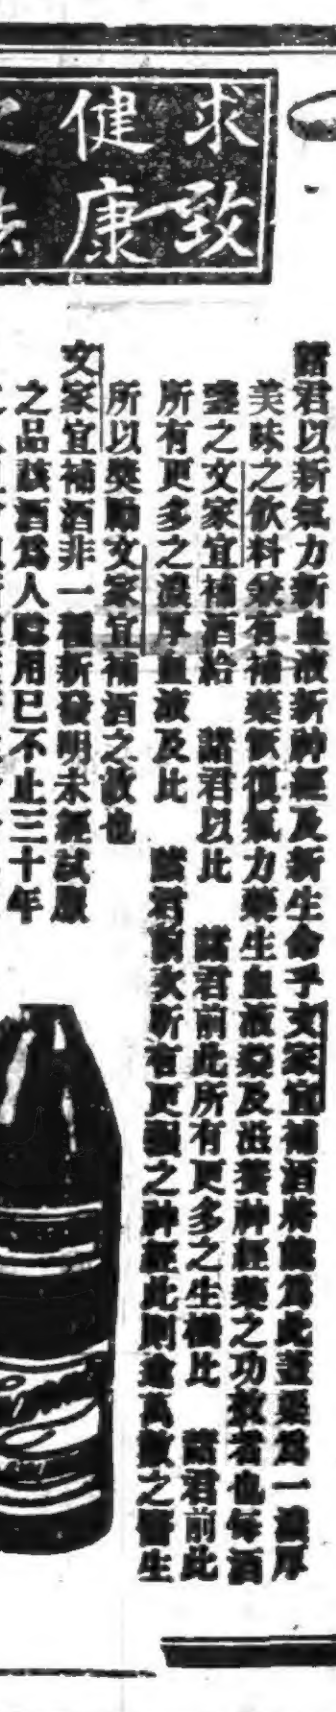 求致
健康
之法
諸君以新氣力新血液新神經及新生命乎文家宜補酒將能為此蓋藥為一濃厚
美味之飲料兼有補藥恢復氣力藥生血液藥及滋養神經藥之功效者也每酒
盞之文家宜補酒給 諸君以比 諸君前此所有更多之生機比 諸君前此
所有更多之濃厚血液及比 諸君前次所有更強之神經此則逾萬數之醫生
所以獎勵文家宜補酒之故也
文家宜補酒非一種新發明未經試驗
之品該酒為人應用已不止三十年